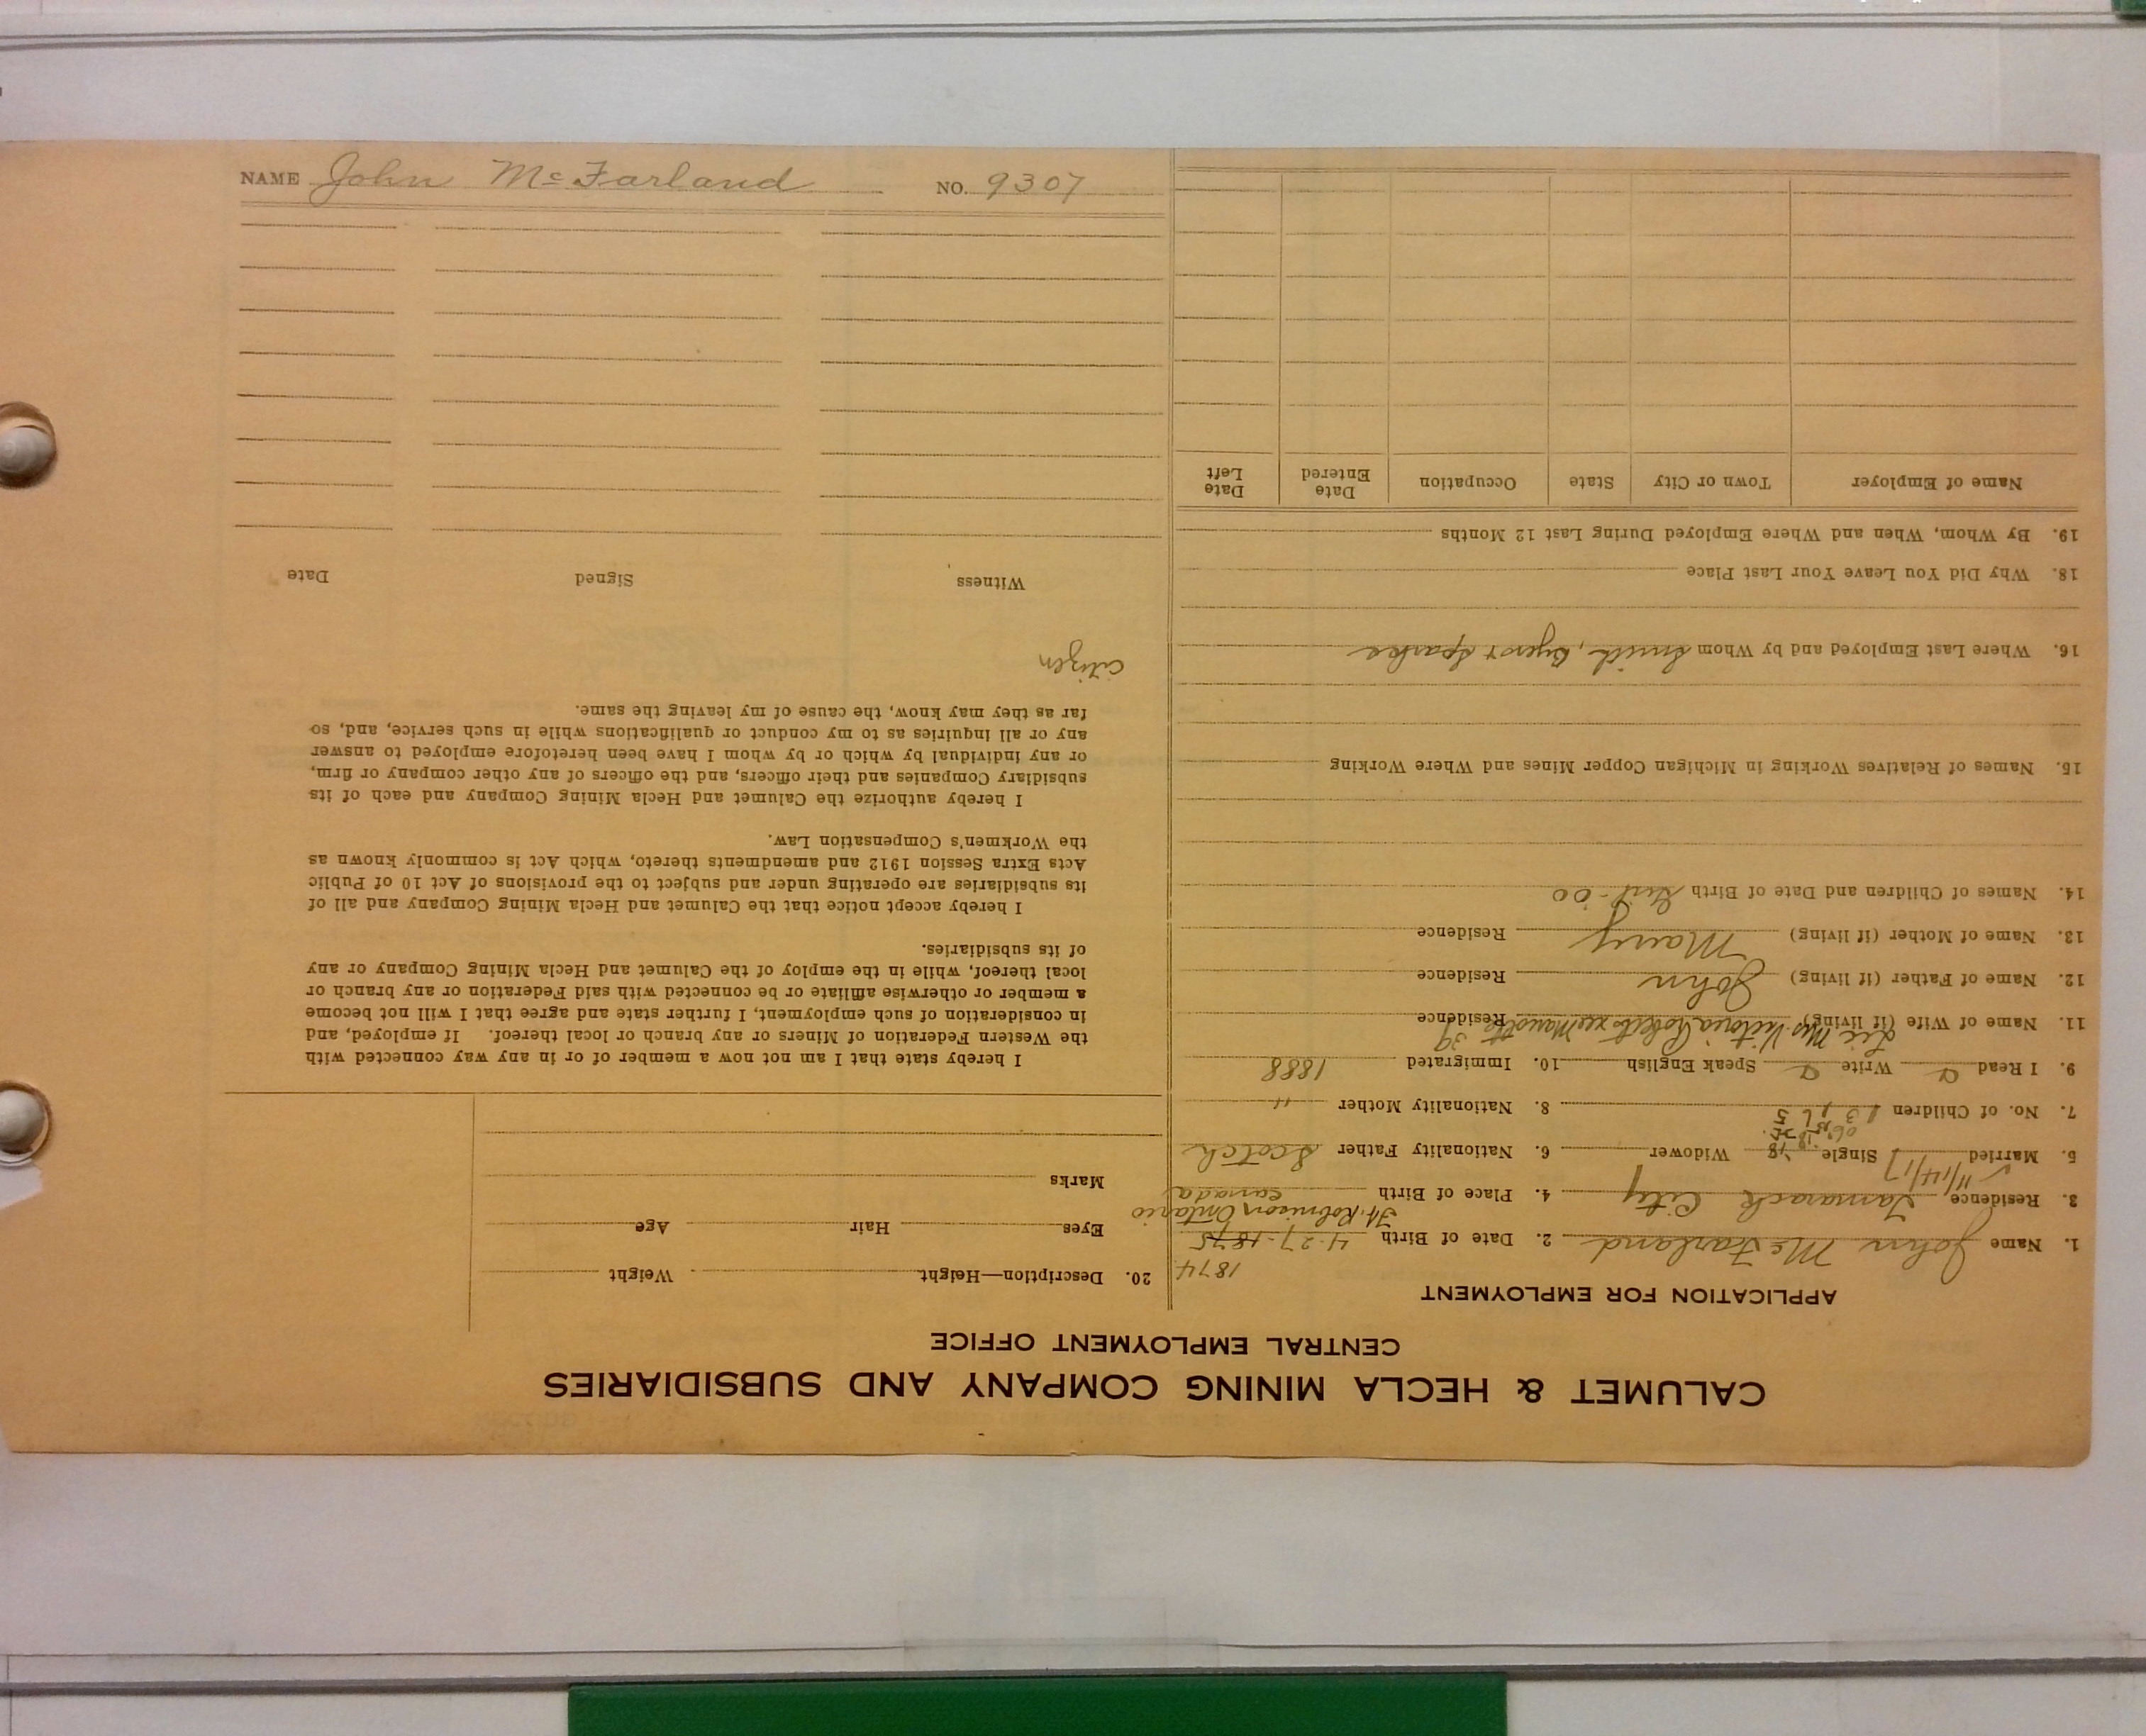 NAME John McFarland NO. 9307
CALUMET & HECLA MINING COMPANY AND SUBSIDIARIES
CENTRAL EMPLOYMENT OFFICE
APPLICATION FOR EMPLOYMENT
1874
1. Name John McFarland 2. Date of Birth 4-27-1875
Ft. Robinson Ontario
3. Residence Tamarack City 4. Place of Birth Canada
11/14/17
5. Married Single Widower 6. Nationality Father Scotch
7. No. of Children 8. Nationality Mother "
9. I Read a Write a Speak English 10. Immigrated 1888
Mrs Victoria
11. Name of Wife (if living) Residence
12. Name of Father (if living) John Residence
13. Name of Mother (if living) Mary Residence
14. Names of Children and Date of Birth Girl-00
15. Names of Relatives Working in Michigan Copper Mines and Where Working
16. Where Last Employed and by Whom Smith, Byers & Sparks
18. Why Did You Leave Your Last Place
19. By Whom, When and Where Employed During Last 12 Months
Name of Employer Town or City State Occupation Date Entered Date Left
20. Description—Height Weight
Eyes Hair Age
Marks
I hereby state that I am not now a member of or in any way connected with
the Western Federation of Miners or any branch or local thereof. If employed, and
in consideration of such employment, I further state and agree that I will not become
a member or otherwise affiliate or be connected with said Federation or any branch or
local thereof, while in the employ of the Calumet and Hecla Mining Company or any
of its subsidiaries.
I hereby accept notice that the Calumet and Hecla Mining Company and all of
its subsidiaries are operating under and subject to the provisions of Act 10 of Public
Acts Extra Session 1912 and amendments thereto, which Act is commonly known as
the Workmen's Compensation Law.
I hereby authorize the Calumet and Hecla Mining Company and each of its
subsidiary Companies and their officers, and the officers of any other company or firm,
or any individual by which or by whom I have been heretofore employed to answer
any or all inquiries as to my conduct or qualifications while in such service, and, so
far as they may know, the cause of my leaving the same.
Citizen
Witness Signed Date